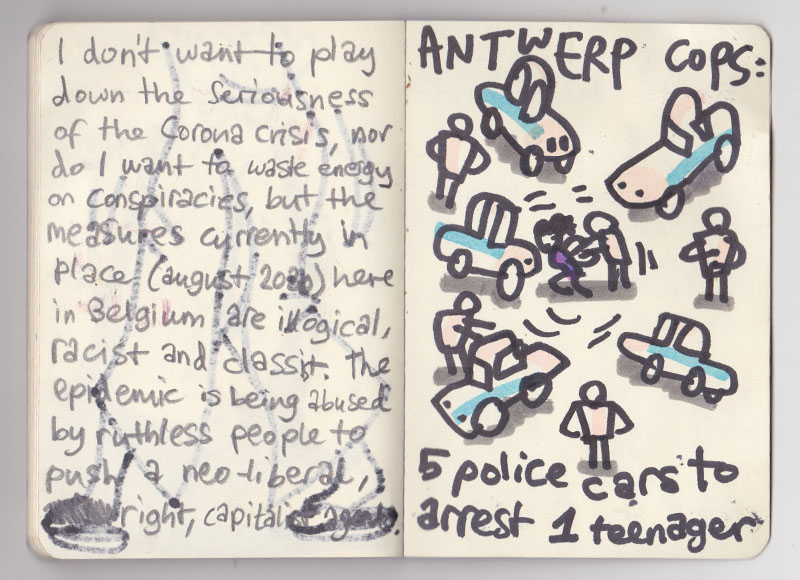 I don't want to play
down the seriousness
of the Corona crisis, nor
do I want to waste energy
on conspiracies, but the
measures currently in
place (august 2020) here
in Belgium are illogical,
racist and classist. The
epidemic is being abused
by ruthless people to
push a neo-liberal,
right, capitalist agenda.
ANTWERP COPS:
5 police cars to
arrest 1 teenager